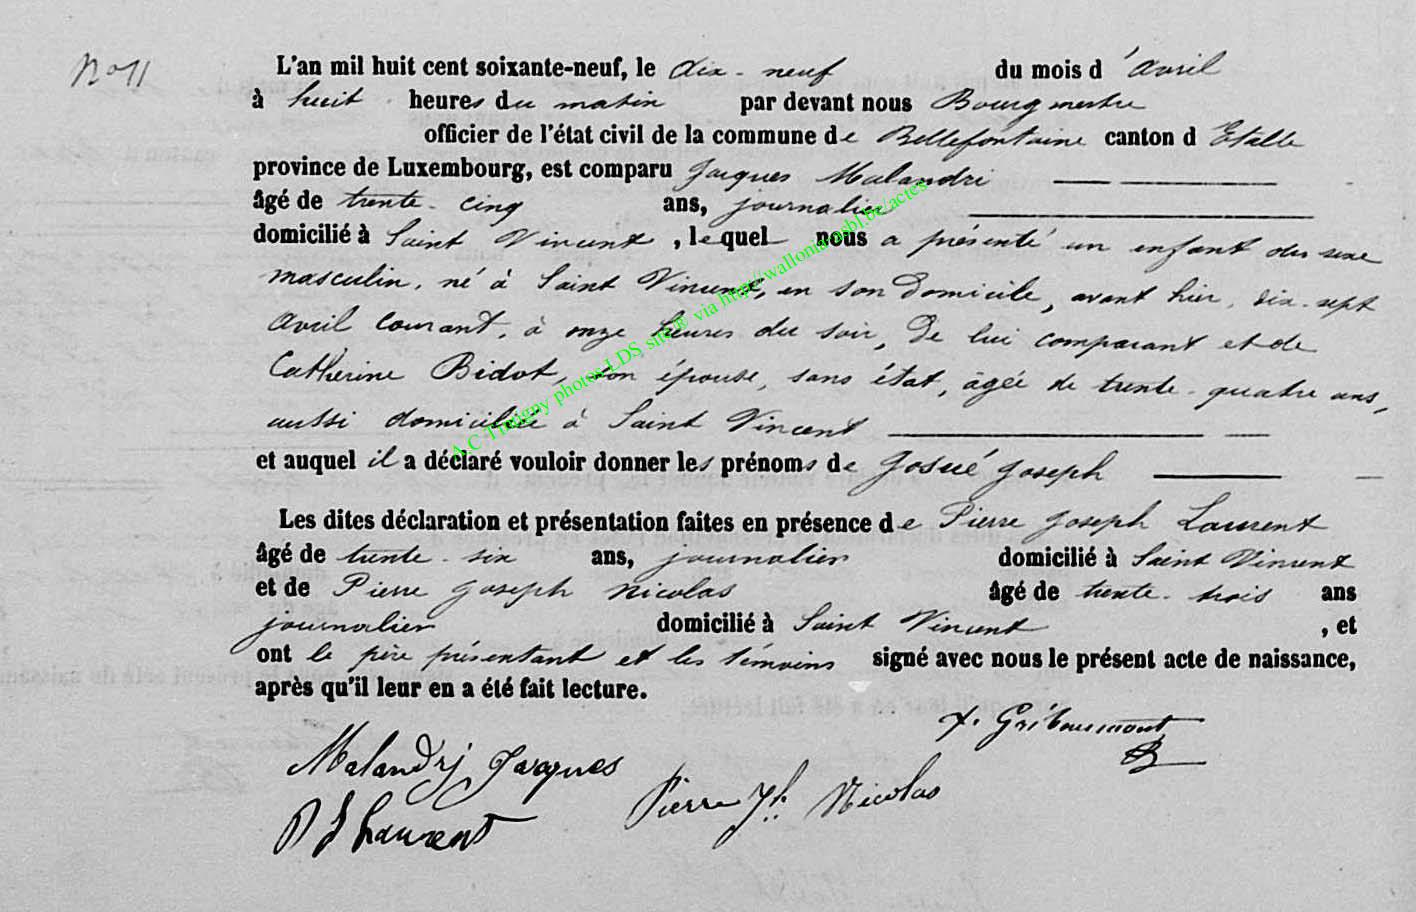 N° 11
L'an mil huit cent soixante-neuf, le dix-neuf du mois d'avril
à huit heures du matin par devant nous Bourgmestre
officier de l'état civil de la commune de Bellefontaine canton d'Etalle
province de Luxembourg, est comparu Jacques Malandri
âgé de trente-cinq ans, journalier
domicilié à Saint Vincent, lequel nous a présenté un enfant du sexe
masculin, né à Saint Vincent, en son domicile, avant hier, dix-sept
avril courant, à onze heures du soir, de lui comparant et de
Catherine Bidot, son épouse, sans état, âgée de trente-quatre ans,
aussi domiciliée à Saint Vincent
et auquel il a déclaré vouloir donner les prénoms de Josué Joseph
Les dites déclaration et présentation faites en présence de Pierre Joseph Laurent
âgé de trente-six ans, journalier domicilié à Saint Vincent
et de Pierre Joseph Nicolas âgé de trente-trois ans
journalier domicilié à Saint Vincent, et
ont le père présentant et les témoins signé avec nous le présent acte de naissance,
après qu'il leur en a été fait lecture.
Gribaumont
Malandrj Jacques
Pierre Jh. Nicolas
P J Laurent
A.C Tintigny photos LDS, sims®, via http://wallonia-asbl.be/actes